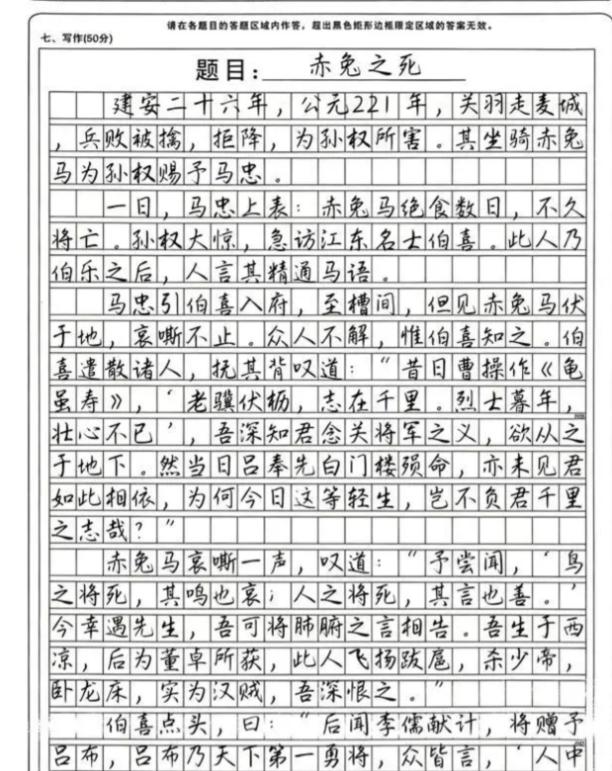 请在各题目的答题区域内作答，超出黑色矩形边框限定区域的答案无效。
七、写作(50分)
题目：赤兔之死
建安二十六年，公元221年，关羽走麦城
，兵败被擒，拒降，为孙权所害。其坐骑赤兔
马为孙权赐予马忠。
一日，马忠上表：赤兔马绝食数日，不久
将亡。孙权大惊，急访江东名士伯喜。此人乃
伯乐之后，人言其精通马语。
马忠引伯喜入府，至槽间，但见赤兔马伏
于地，哀嘶不止。众人不解，惟伯喜知之。伯
喜遣散诸人，抚其背叹道：“昔日曹操作《龟
虽寿》，‘老骥伏枥，志在千里。烈士暮年，
壮心不已’，吾深知君念关将军之义，欲从之
于地下。然当日吕奉先白门楼殒命，亦未见君
如此相依，为何今日这等轻生，岂不负君千里
之志哉？”
赤兔马哀嘶一声，叹道：“予尝闻，‘鸟
之将死，其鸣也哀；人之将死，其言也善。’
今幸遇先生，吾可将肺腑之言相告。吾生于西
凉，后为董卓所获，此人飞扬跋扈，杀少帝，
卧龙床，实为汉贼，吾深恨之。”
伯喜点头，曰：“后闻李儒献计，将赠予
吕布，吕布乃天下第一勇将，众皆言，‘人中